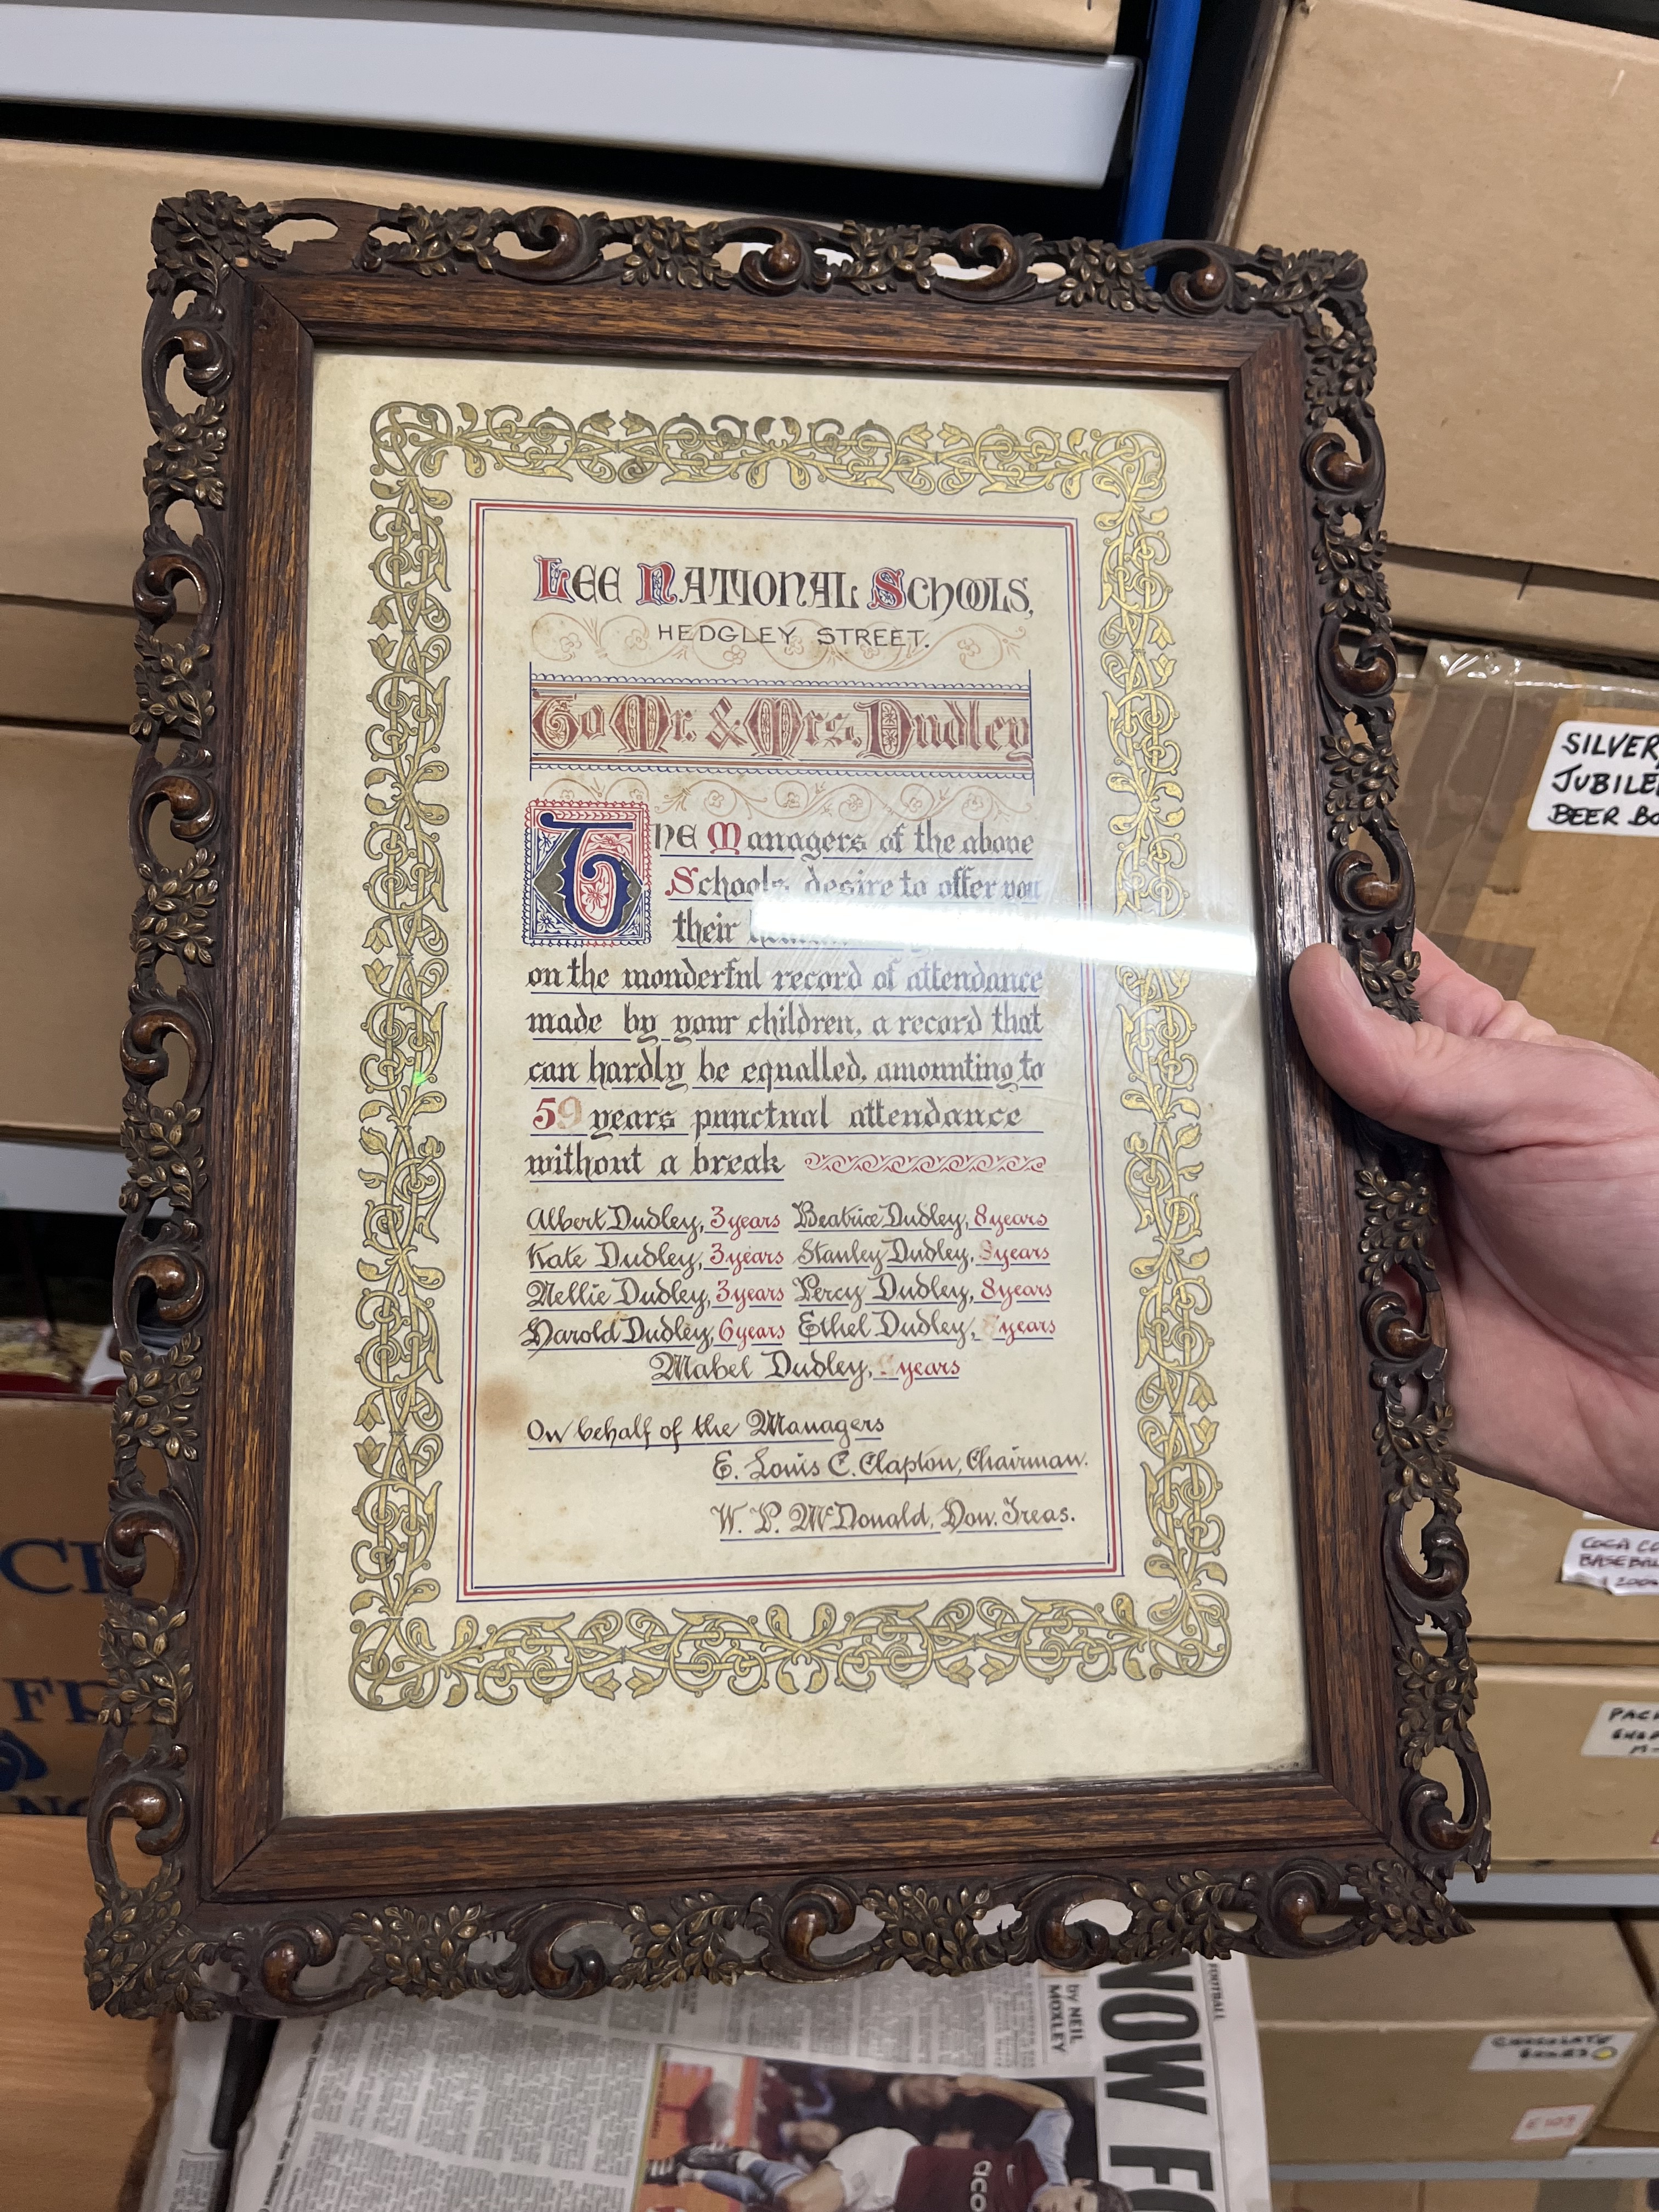 LEE NATIONAL SCHOOLS,
HEDGLEY STREET.
To Mr. & Mrs. Dudley
THE Managers of the above
Schools desire to offer you
their
on the wonderful record of attendance
made by your children, a record that
can hardly be equalled, amounting to
59 years punctual attendance
without a break
Albert Dudley, 3 years Beatrice Dudley, 8 years
Kate Dudley, 3 years Stanley Dudley, years
Nellie Dudley, 3 years Percy Dudley, 8 years
Harold Dudley, 6 years Ethel Dudley, years
Mabel Dudley, years
On behalf of the Managers
E. Louis C. Clapton, Chairman.
W. P. McDonald, Hon. Treas.
SILVER
JUBILE
BEER BO
COCA CO
BASEBA
PACK
CHOCOLATE
BOXES
FR
by NEIL
MOXLEY
NOW FO
FOOTBALL
aco